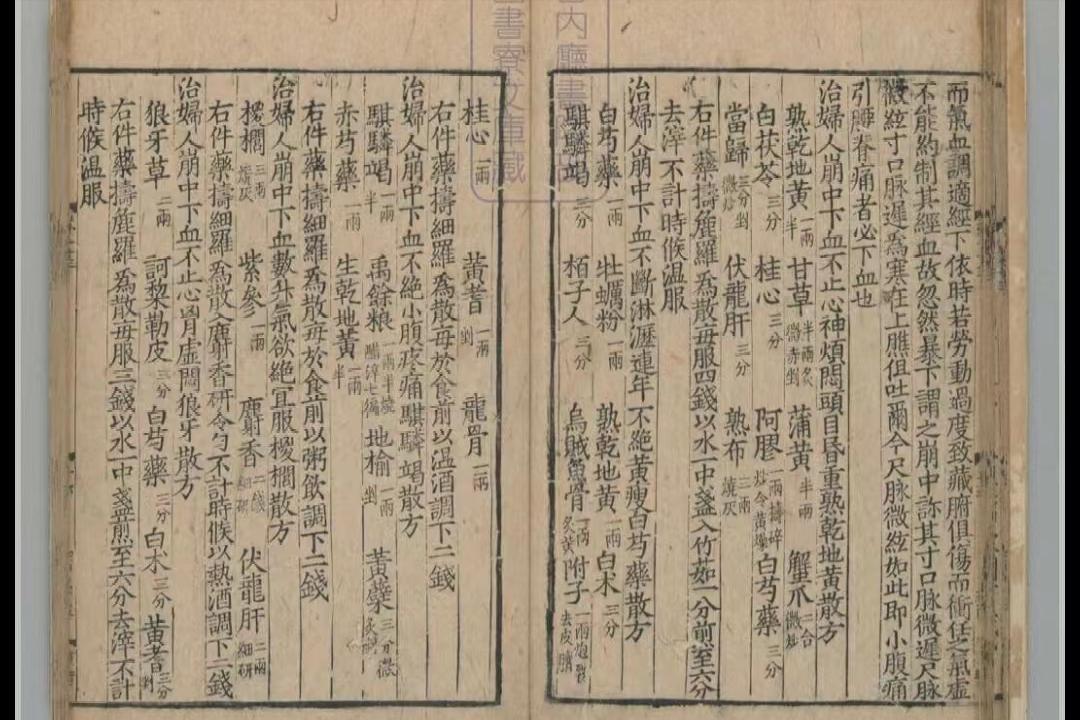 而氣血調適經下依時若勞動過度致藏腑俱傷而衝任之氣虛
不能約制其經血故忽然暴下謂之崩中診其寸口脉微遲尺脉
微絃寸口脉遲爲寒在上膲但吐爾今尺脉微絃如此即小腹痛
引腰脊痛者必下血也
治婦人崩中下血不止心神煩悶頭目昏重熟乾地黃散方
熟乾地黃一兩半 甘草半兩炙微赤剉 蒲黃半兩 蟹爪二合微炒
白茯苓三分 桂心三分 阿膠一兩擣碎炒令黃燥 白芍藥三分
當歸三分剉微炒 伏龍肝三分 熟布三兩燒灰
右件藥擣麁羅爲散每服四錢以水一中盞入竹茹一分煎至六分
去滓不計時候温服
治婦人崩中下血不斷淋瀝連年不絶黃瘦白芍藥散方
白芍藥一兩 牡蠣粉一兩 熟乾地黃一兩 白朮三分
騏驎竭三分 栢子人三分 烏賊魚骨一兩炙黃 附子一兩炮裂去皮臍
桂心一兩 黃耆一兩剉 龍骨一兩
右件藥擣細羅爲散每於食前以温酒調下二錢
治婦人崩中下血不絶小腹疼痛騏驎竭散方
騏驎竭一兩半 禹餘粮一兩半燒醋淬七徧 地榆一兩剉 黃蘗三分微炙剉
赤芍藥一兩 生乾地黃一兩半
右件藥擣細羅爲散每於食前以粥飲調下二錢
治婦人崩中下血數升氣欲絶宜服椶櫚散方
椶櫚三兩燒灰 紫參一兩 麝香二錢細研 伏龍肝二兩細研
右件藥擣細羅爲散入麝香研令勻不計時候以熱酒調下二錢
治婦人崩中下血不止心胷虛悶狼牙散方
狼牙草二兩 訶黎勒皮三分 白芍藥三分 白朮三分 黃耆三分剉
右件藥擣麁羅爲散每服三錢以水一中盞煎至六分去滓不計
時候温服